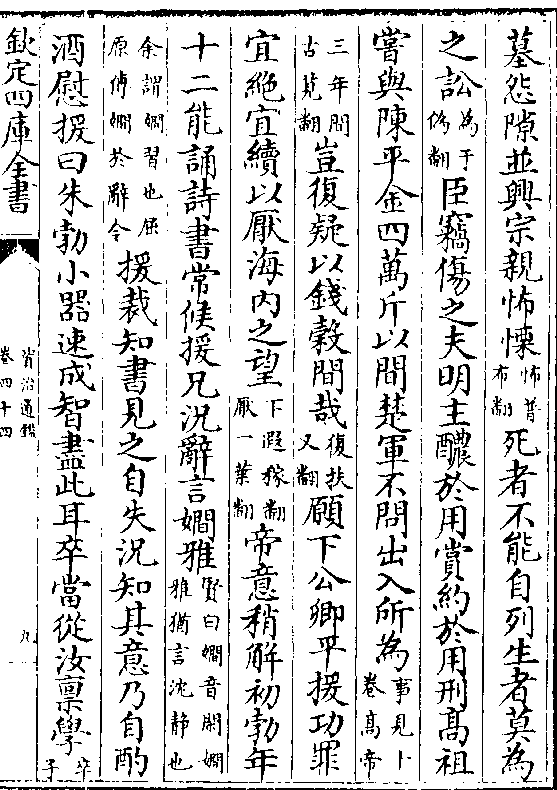 墓怨隙並興宗親怖慄怖普布翻死者不能自列生者莫為
之訟為于偽翻臣竊傷之夫明主醲於用賞約於用刑髙祖
嘗與陳平金四萬斤以間楚軍不問出入所為事見卜卷髙帝
三年間古莧翻豈復疑以錢榖間哉復扶又翻願下公卿平援功罪
宜絶宜續以厭海内之望下遐稼翻厭一葉翻帝意稍解初勃年
十二能誦詩書常候援兄況辭言嫺雅賢曰嫺音閑嫺雅猶言沈静也
余謂嫺習也屈原傳嫺於辭令援裁知書見之自失況知其意乃自酌
酒慰援曰朱勃小器速成智盡此耳卒當從汝禀學卒子
欽定四庫全書
資治通鑑
卷四十四
九